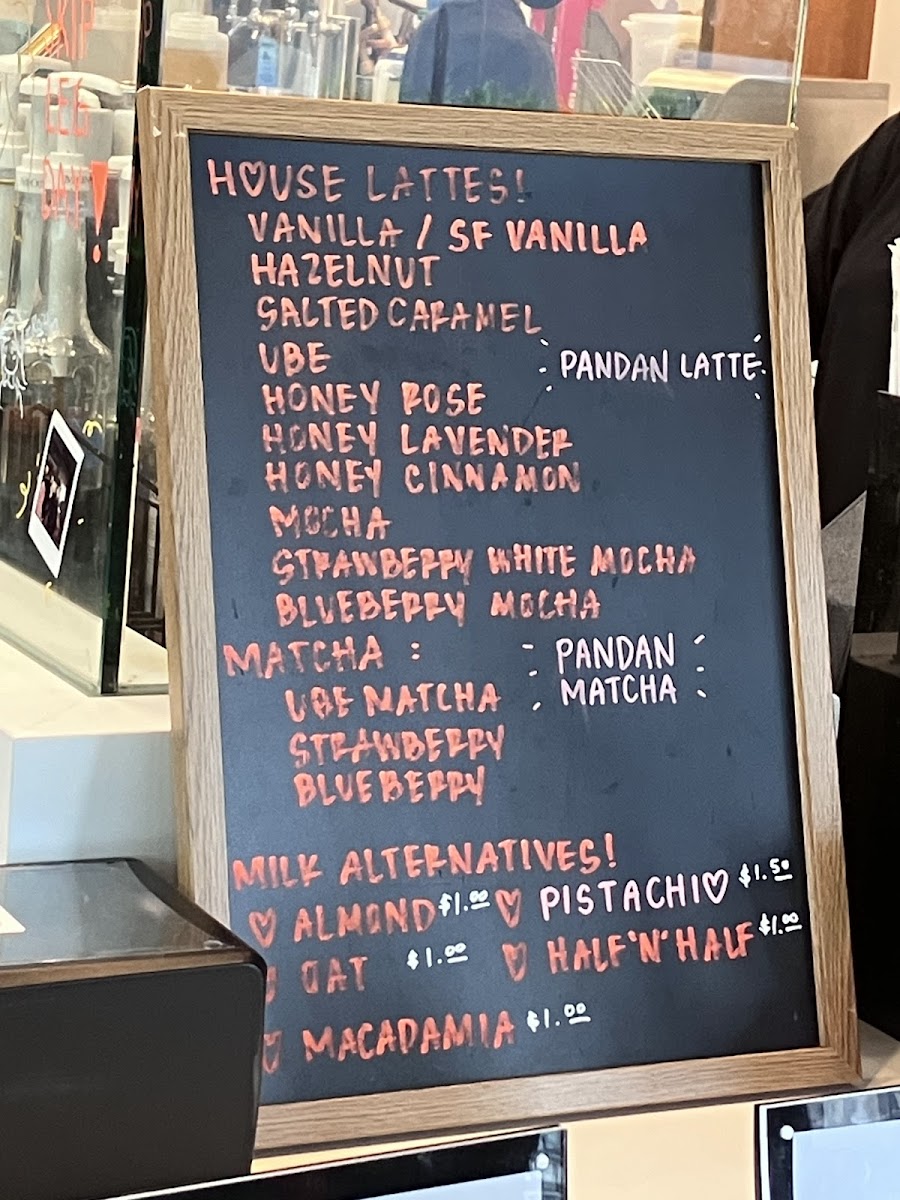 SKIP
LEG
DAY!
H♡USE LATTES!
VANILLA / SF VANILLA
HAZELNUT
SALTED CARAMEL
UBE
PANDAN LATTE
HONEY ROSE
HONEY LAVENDER
HONEY CINNAMON
MOCHA
STRAWBERRY WHITE MOCHA
BLUEBERRY MOCHA
MATCHA :
PANDAN
MATCHA
UBE MATCHA
STRAWBERRY
BLUEBERRY
MILK ALTERNATIVES!
♡ ALMOND $1.00 ♡ PISTACHI♡ $1.50
♡ OAT $1.00 ♡ HALF'N'HALF $1.00
♡ MACADAMIA $1.00